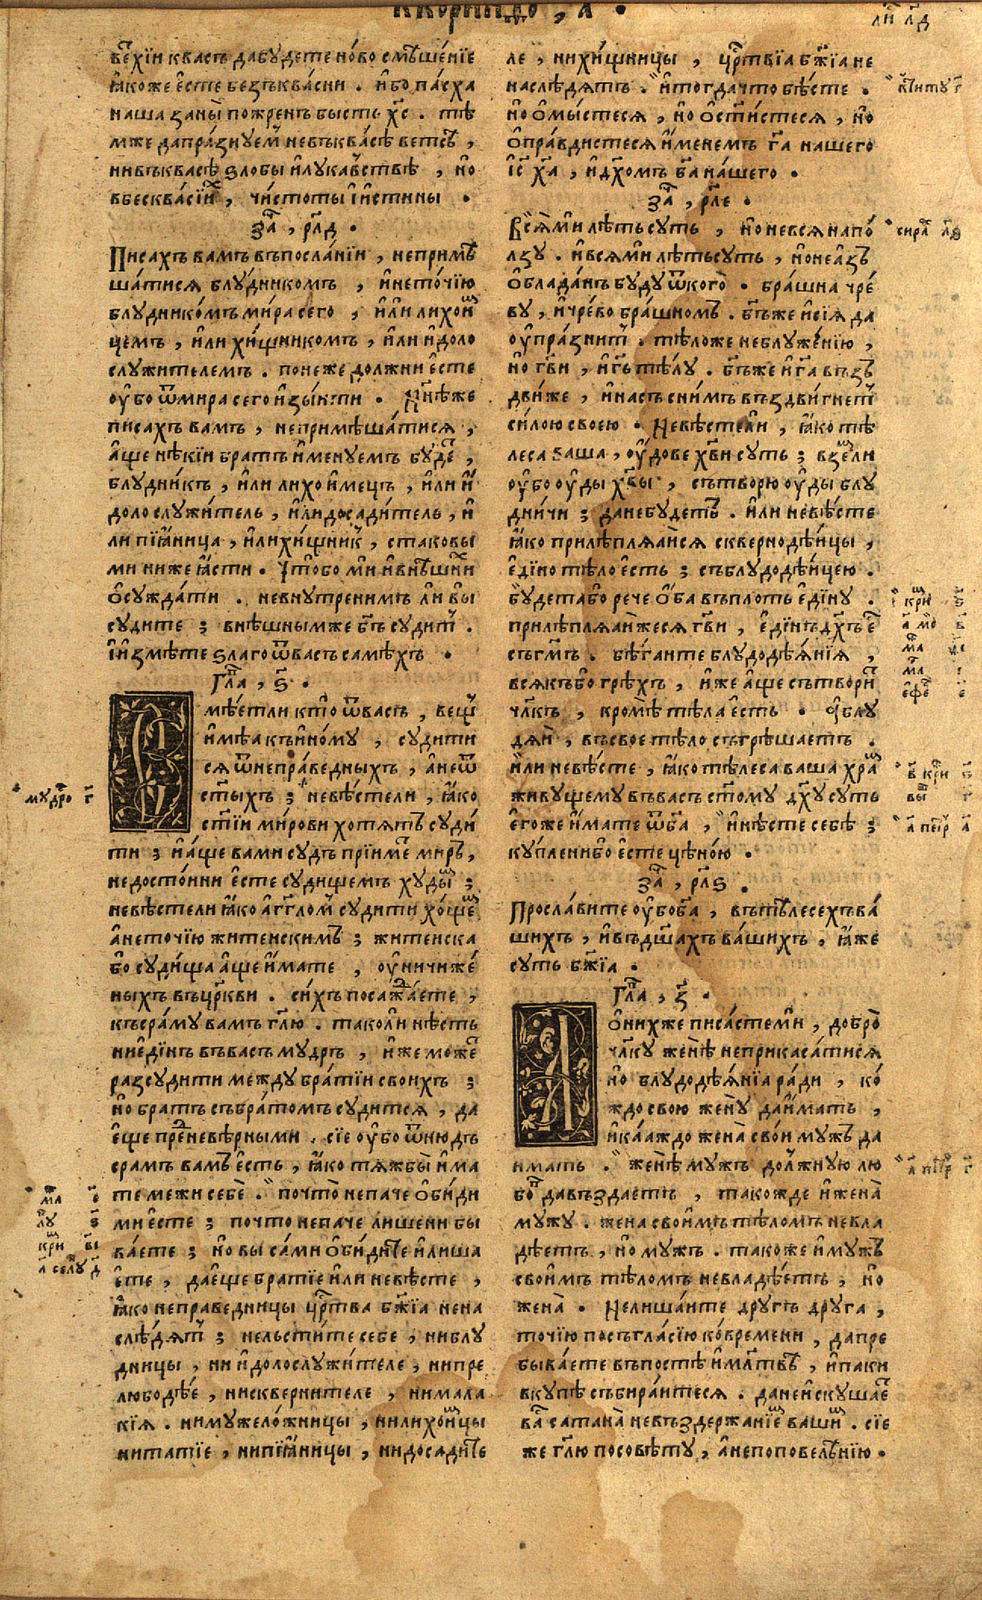 ккоринѳо , а҃ •
ли҃ лд҃
ветхїи квасъ дабудете но́во смѣше́нїе
ꙗ҆́коже є҆сте безъква́сни . и҆бо па́сха
наша заны̀ пожренъ бысть хс҃ . тѣ
мже дапра́знуемъ невъква́сѣ ветсѣ ,
нивъквасѣ ѕлобы и҆лука́вствѣ , но
вбесква́сїих , чи́стоты и҆и҆стины •
за҃ , рлд҃ •
Писахъ вамъ въпосла́нїи , непримѣ
ша́тися блу́дникомъ , и҆нето́чїю
блудnико́мъ ми́ра сего , и҆́ли лихои
цемъ , и҆ли хи́щникомъ , и҆́ли и҆доло
служителемъ . понеже должни є҆сте
оу҆бо ѿмира сего и҆зы́ити • Ннѣже
писахъ вамъ , непримѣша́тися ,
а҆ще нѣкїи братъ и҆менуемъ буде ,
блудникъ , и҆ли лихои҆мецъ , и҆ли и҆
доло служитель , и҆лидосади́тель , и҆
ли пїꙗ҆ница , и҆лихи́щникъ , стаковы
ми ниже ꙗ҆сти • Чтобо ми и҆внѣшних
о҆сужда́ти . невнутренимъ ли вы
судите ; внѣшнымже бг҃ъ судитъ .
И҆и҆змѣте ѕлаго ѿвасъ самѣхъ •
Гла҃ , ѕ҃ •
Смѣетли кто ѿвасъ , вещъ
и҆мѣа къи҆но́му , судити
ся ѿнепра́ведныхъ , а҆неѿ
ст҃ыхъ ; невѣстели , ꙗ҆ко
ст҃їи ми́рови хотятъ суди́
ти ; и҆а҆ще вами судъ прїиме миръ ,
недосто́ини є҆сте судищемъ худы ;
невѣстели ꙗ҆ко а҆гг҃ломъ судити хо́ще
а҆нето́чїю житенскимъ ; житенска
бо суди́ща а҆ще и҆мате , оу҆ничиже́
ныхъ въцр҃кви . си́хъ посажда́ете ,
къ сра́му вамъ гл҃ю . тако ли нѣсть
ниє҆ди́нъ въвасъ му́дръ , и҆же може
разсудити между бра́тїи своихъ ;
но братъ събра́томъ судится , да
є҆ще пред невѣрными . сїе оу҆бо ѿнюдъ
срамъ вамъ є҆сть , ꙗ҆ко тяжбы̀ и҆ма
те межи себѐ . почто̀ непаче о҆биди
ми є҆сте ; почто непаче лишени бы
ва́ете ; но вы са́ми о҆би́дите и҆лиша
є҆те , дає҆ще братїе и҆ли невѣсте ,
ꙗ҆ко неправедницы цр҃тва бж҃їа нена
слѣ́дятъ ; нельсти́те себе , ниблу
дницы , ни и҆долослужи́теле , нипре
любодѣе , нисквернителе , нимала
кїя . нимужело́жницы , нилихоимцы
нитатїе , нипїꙗ҆́ницы , нидосади́те
ле , нихи́щницы , цр҃твїа бж҃їа не
наслѣ́дятъ . и҆тогда́что бѣ́сте .
но о҆мы́стеся , но о҆ст҃и́стеся , но
о҆пра́вдистеся и҆́менемъ га҃ нашего
і҆с҃ ха҃ , и҆дх҃омъ ба҃ на́шего •
за҃ , рле҃ •
Вся̀ ми лѣ́ть суть , но невся напо́
лзу . и҆вся ми лѣть суть , но не а҆зъ
о҆блада́нъ буду ѿкого̀ • бра́шна чре́
ву , и҆чре́во брашномъ . бг҃ъже и҆сїя да
оу҆пра́знитъ . тѣложе неблуже́нїю ,
но гв҃и , и҆гь҃ тѣ́лу . бг҃ъже и҆га҃ въз
движе , и҆насъ сни́мъ въздви́гнетъ
си́лою своею • Невѣстели , ꙗ҆ко тѣ
леса ваша , оу҆́дове хв҃и суть ; взе́мли
оу҆бо оу҆́ды хв҃ы , сътворю оу҆́ды блу
дничи ; данебу́детъ . и҆ли невѣсте
ꙗ҆ко прилѣпляа҆йся сквернодѣ́ицы ,
є҆ди́но тѣло є҆сть ; съблудодѣ́ицею .
бу́дета бо рече о҆ба въплоть є҆ди́ну .
прилѣпля́айжеся гв҃и , є҆ди́нъ дх҃ъ є
съ гм҃ъ . бѣ́гаите блудодѣ́янїя ,
всякъ бо грѣ́хъ , и҆же а҆ще сътворитъ
чл҃къ , кромѣ тѣла є҆сть • а҆ блу
дяи , въсвое тѣло съгрѣша́етъ .
и҆ли невѣсте , ꙗ҆ко тѣлеса ваша храм
живу́щему въвасъ ст҃ому дх҃у суть
є҆гоже и҆мате ѿба҃ , и҆нѣсте себѣ ;
куплени бо є҆сте цѣно́ю •
за҃ , рлѕ҃ •
Просла́вите оу҆бо ба҃ , вътѣлесехъ ва́
шихъ , и҆въдш҃ахъ ва́шихъ , ꙗ҆же
суть бж҃їа •
Гла҃ , з҃ •
А о҆нихже писа́сте ми , добро̀
чл҃ку же́нѣ неприкаса́тися
но блудодѣ́янїа ра́ди , ко́
ждо свою жену̀ дай́мать ,
и҆ка́аждо жена̀ свои мужъ да
имать . же́нѣ мужъ до́лжную лю
бовь давъздаетъ , такожде и҆жена̀
мужу . жена своимъ тѣломъ невла
дѣ́етъ , но мужъ . такоже и҆мужъ
своимъ тѣломъ невладѣ́етъ , но
жена̀ • Нелиша́ите другъ друга ,
то́чїю посъгла́сїю ко́времени , дапре
быва́ете въпостѣ и҆мл҃твѣ , и҆паки
вкупѣ събира́итеся . данеи҆скуша́е
ва сатана̀ невъздержанїем ваши . сїе
же гл҃ю посовѣту , а҆непоповелѣ́нїю •